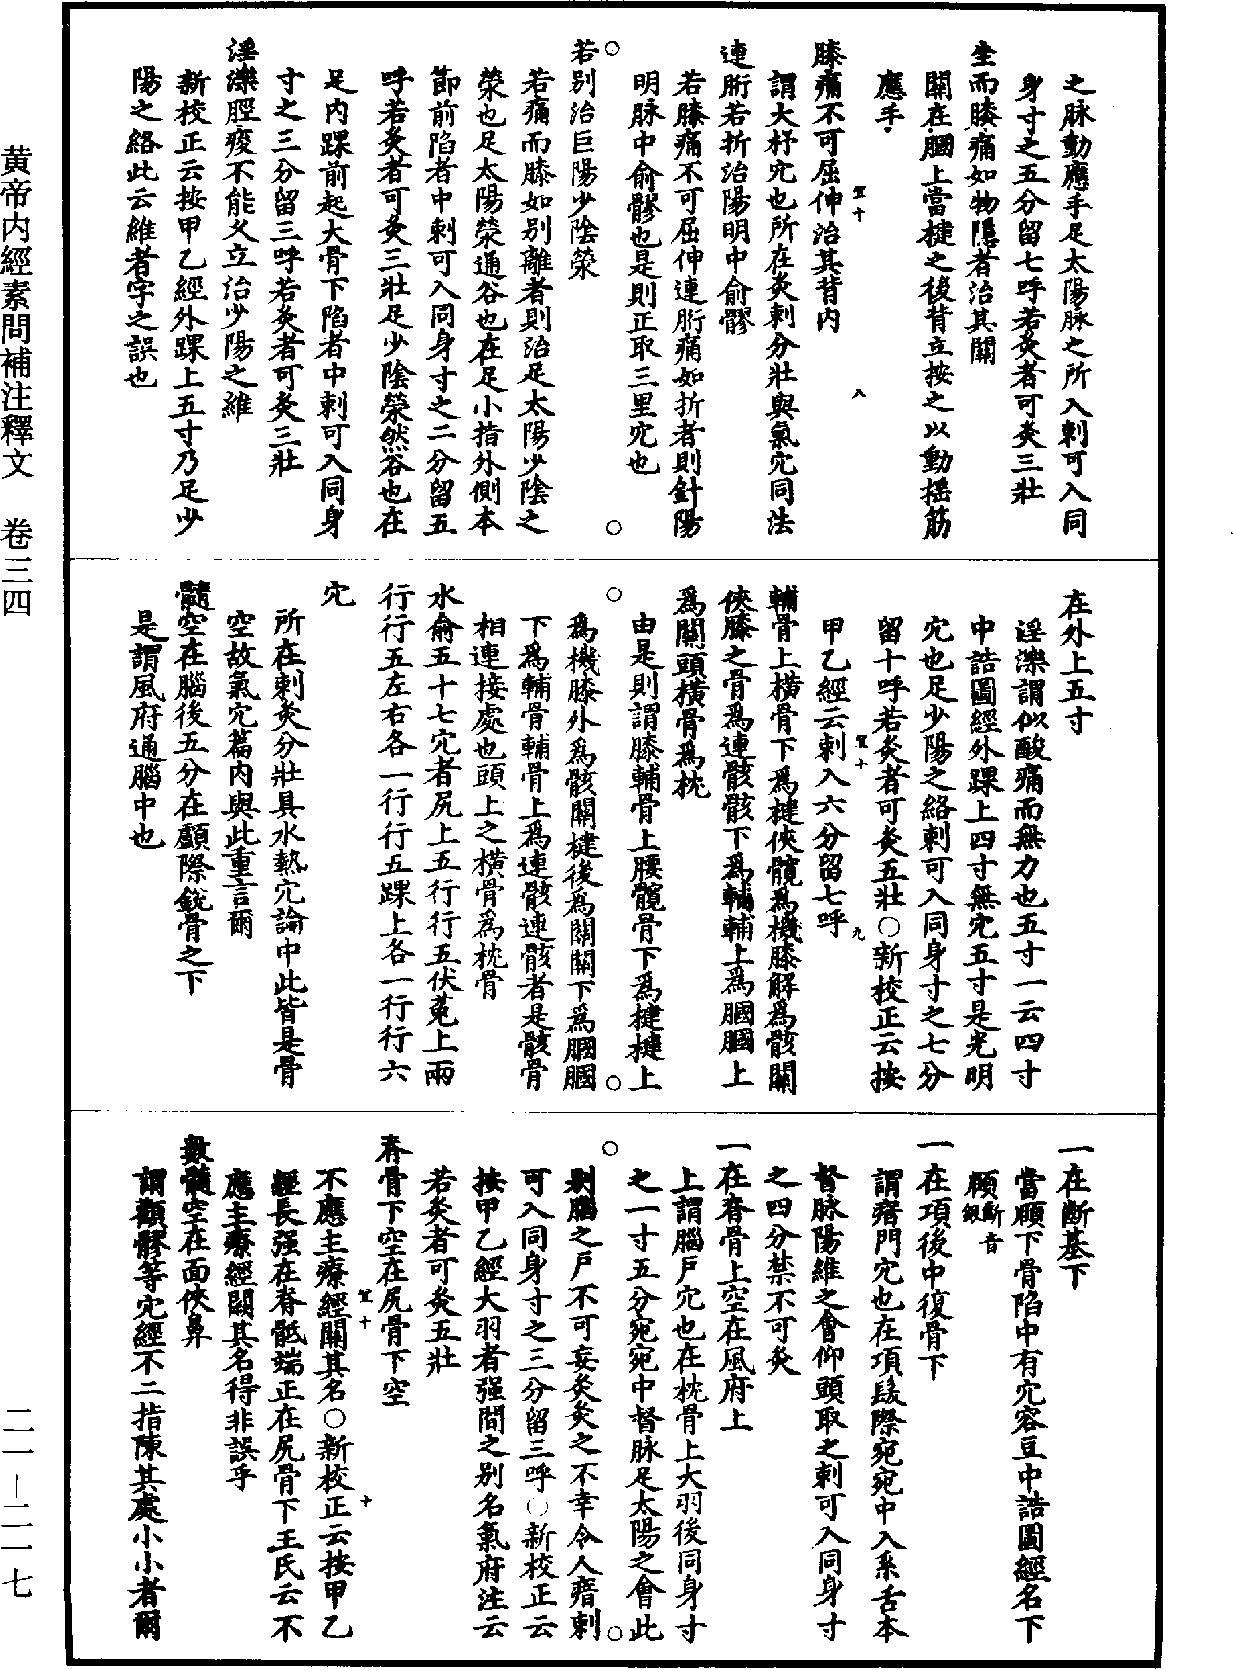 之脉動應手足太陽脉之所入刺可入同
身寸之五分留七呼若灸者可灸三壯
坐而膝痛如物隱者治其關
關在膕上當楗之後背立按之以動揺筋
應手
膝痛不可屈伸治其背内
謂大杼穴也所在灸刺分壯與氣穴同法
連胻若折治陽明中俞髎
若膝痛不可屈伸連胻痛如折者則針陽
明脉中俞髎也是則正取三里穴也
若别治巨陽少陰滎
若痛而膝如别離者則治足太陽少陰之
滎也足太陽滎通谷也在足小指外側本
節前陷者中刺可入同身寸之二分留五
呼若灸者可灸三壯足少陰滎然谷也在
足内踝前起大骨下陷者中刺可入同身
寸之三分留三呼若灸者可灸三壯
淫濼脛痠不能久立治少陽之維
新校正云按甲乙經外踝上五寸乃足少
陽之絡此云維者字之誤也
在外上五寸
淫濼謂似酸痛而無力也五寸一云四寸
中誥圖經外踝上四寸無穴五寸是光明
穴也足少陽之絡刺可入同身寸之七分
留十呼若灸者可灸五壯○新校正云按
甲乙經云刺入六分留七呼
輔骨上横骨下爲楗俠髖爲機膝解爲骸關
俠膝之骨爲連骸骸下爲輔輔上爲膕膕上
爲關頭横骨爲枕
由是則謂膝輔骨上腰髖骨下爲楗楗上
爲機膝外爲骸關楗後爲關關下爲膕膕
下爲輔骨輔骨上爲連骸連骸者是骸骨
相連接處也頭上之横骨爲枕骨
水俞五十七穴者尻上五行行五伏菟上兩
行行五左右各一行行五踝上各一行行六
穴
所在刺灸分壯具水熱穴論中此皆是骨
空故氣穴篇内與此重言爾
髓空在腦後五分在顱際鋭骨之下
是謂風府通腦中也
一在斷基下
當頤下骨陷中有穴容豆中誥圖經名下
頤斷音銀
一在項後中復骨下
謂瘖門穴也在項髮際宛宛中入系舌本
督脉陽維之會仰頭取之刺可入同身寸
之四分禁不可灸
一在脊骨上空在風府上
上謂腦戶穴也在枕骨上大羽後同身寸
之一寸五分宛宛中督脉足太陽之會此
别腦之戶不可妄灸灸之不幸令人瘖刺
可入同身寸之三分留三呼○新校正云
按甲乙經大羽者强間之别名氣府注云
若灸者可灸五壯
脊骨下空在尻骨下空
不應主療經闕其名○新校正云按甲乙
經長强在脊骶端正在尻骨下王氏云不
應主療經闕其名得非誤乎
數髓空在面俠鼻
謂顴髎等穴經不二指陳其處小小者爾
黄帝内經素問補注釋文　卷三四
二一—二一七